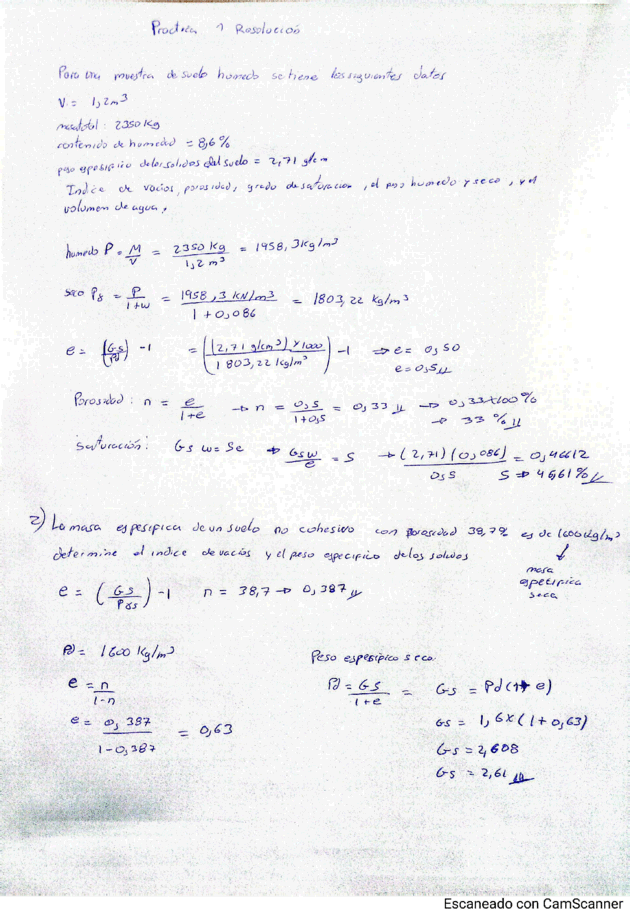 Practica 1 Resolució
Para una muestra de suelo humedo se tiene los siguientes datos
V = 1,2m³
masa total: 2350 Kg
contenido de humedad = 8,6%
peso espesifico de los solidos del suelo = 2,71 g/cm
Indice de vacios, porosidad, grado de saturacion, el peso humedo y seco, y el
volumen de agua,
humedo P = M/V = 2350 Kg / 1,2 m³ = 1958,3 Kg/m³
seco Pd = P / 1+w = 1958,3 KN/m³ / 1+0,086 = 1803,22 Kg/m³
e = (Gs/Pd) -1 = ((2,71 g/cm³) x 1000 / 1803,22 Kg/m³) -1 ⇒ e = 0,50
e = 0,5
Porosidad: n = e / 1+e → n = 0,5 / 1+0,5 = 0,33 → 0,33 x 100%
→ 33 %
saturación: Gs w = Se → Gs w / e = S → (2,71)(0,086) / 0,5 = 0,46612
S ⇒ 46,61%
2) La masa espesifica de un suelo no cohesivo con porosidad 38,7% es de 1600 Kg/m³
determine el indice de vacios y el peso especifico de los solidos
masa
espesifica
seca
e = (Gs/Pds) -1 n = 38,7 → 0,387
Pd = 1600 Kg/m³
e = n / 1-n
e = 0,387 / 1-0,387 = 0,63
Peso espesifico seco
Pd = Gs / 1+e = Gs = Pd(1+e)
Gs = 1,6x(1+0,63)
Gs = 2,608
Gs = 2,61
Escaneado con CamScanner